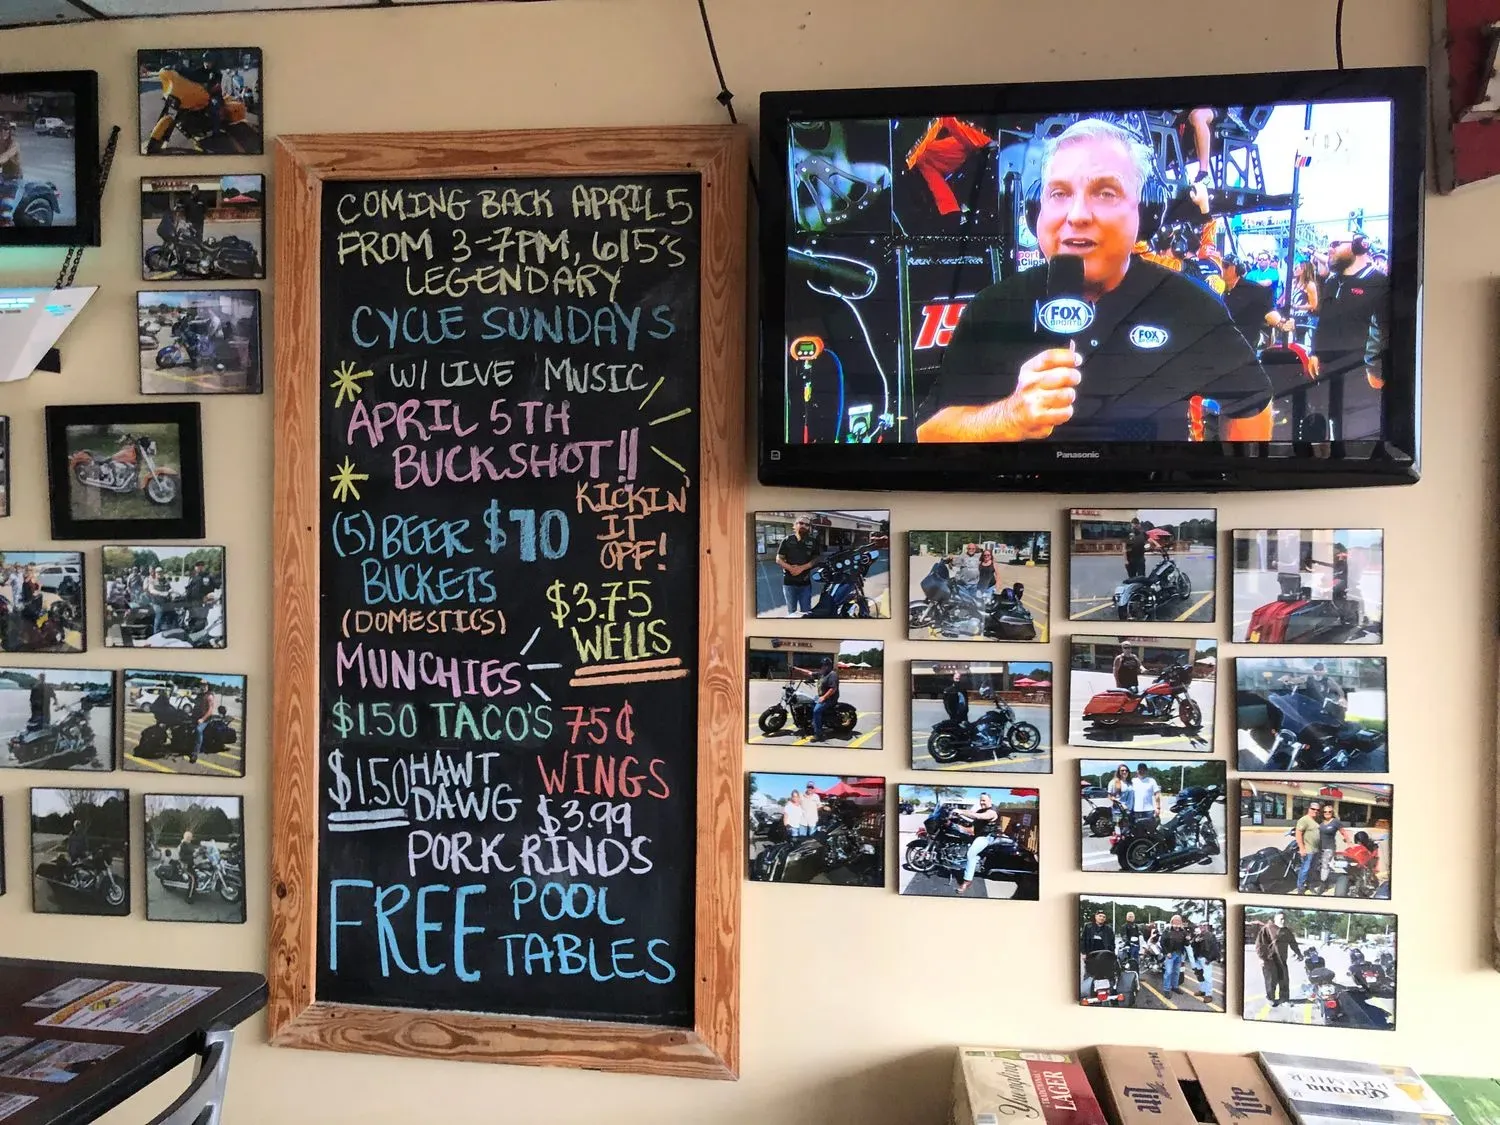 COMING BACK APRIL 5
FROM 3-7PM, 615's
LEGENDARY
CYCLE SUNDAYS
W/ LIVE MUSIC
APRIL 5TH
BUCKSHOT!!
KICKIN'
IT
OFF!
(5) BEER $10
BUCKETS
(DOMESTICS)
$3.75
WELLS
MUNCHIES
$1.50 TACO'S 75¢
WINGS
$1.50 HAWT
DAWG $3.99
PORK RINDS
FREE POOL
TABLES
FOX
SPORTS
FOX
SPORTS
15
Panasonic
Yuengling
TRADITIONAL
LAGER
Lite
Corona
PREMIER